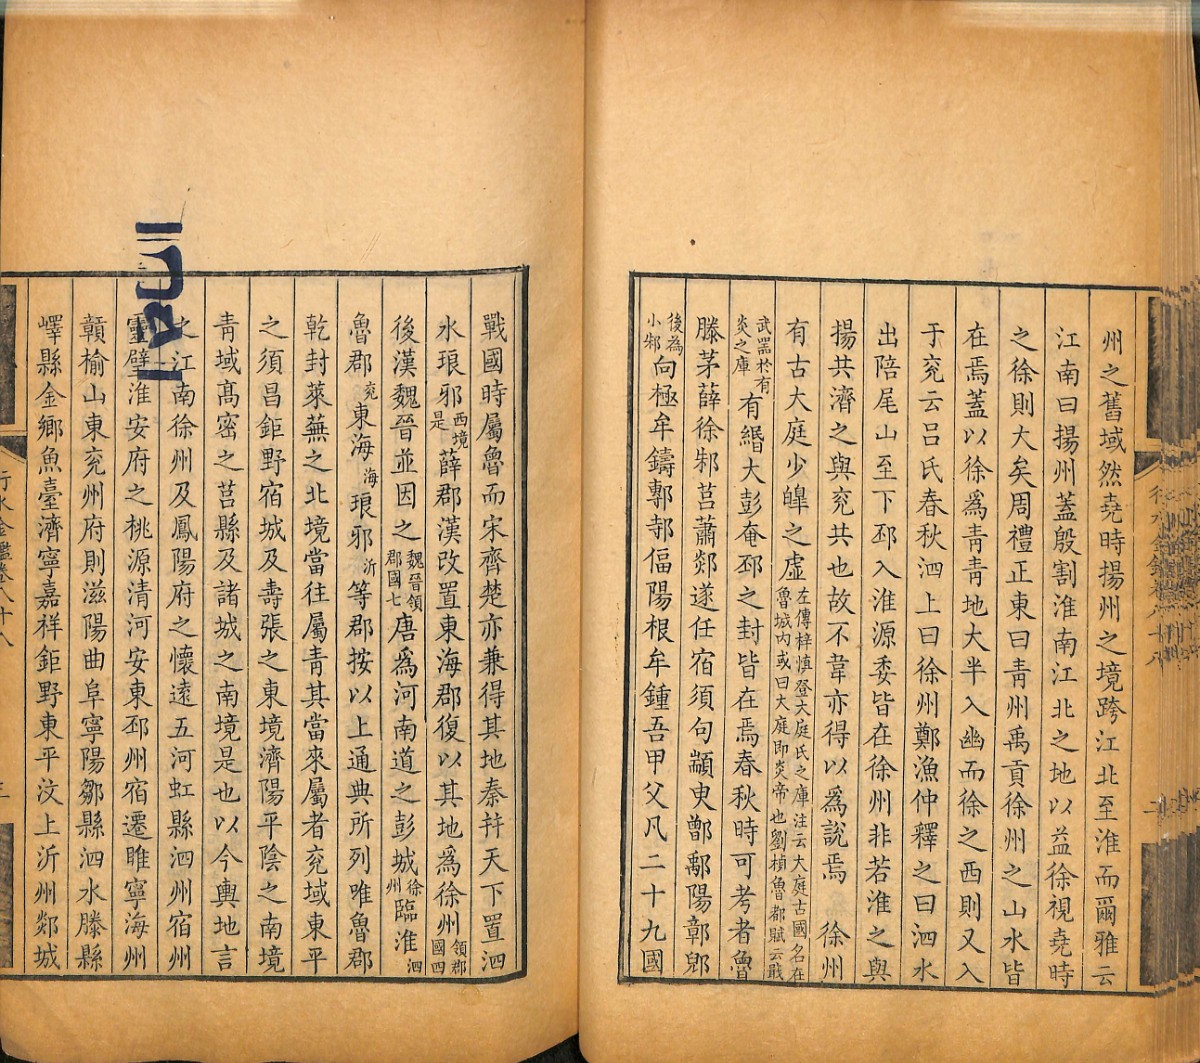 州之舊域然堯時揚州之境跨江北至淮而爾雅云
江南曰揚州蓋殷割淮南江北之地以益徐視堯時
之徐則大矣周禮正東曰青州禹貢徐州之山水皆
在焉蓋以徐爲青青地大半入幽而徐之西則又入
于兖云呂氏春秋泗上曰徐州鄭漁仲釋之曰泗水
出陪尾山至下邳入淮源委皆在徐州非若淮之與
揚共濟之與兖共也故不韋亦得以爲說焉　徐州
有古大庭少皥之虛左傳梓慎登大庭氏之庫注云大庭古國名在魯城內或曰大庭即炎帝也劉楨魯都賦云戢
武器於有炎之庫有緡大彭奄邳之封皆在焉春秋時可考者魯
滕茅薛徐邾莒蕭郯遂任宿須句顓臾鄫鄅陽鄣郳
後為小邾向極牟鑄鄟邿偪陽根牟鍾吾甲父凡二十九國
戰國時屬魯而宋齊楚亦兼得其地秦幷天下置泗
水琅邪西境是薛郡漢改置東海郡復以其地爲徐州領郡國四
後漢魏晉並因之魏晉領郡國七唐爲河南道之彭城徐州臨淮泗
魯郡兖東海海琅邪沂等郡按以上通典所列唯魯郡
乾封萊蕪之北境當往屬青其當來屬者兖域東平
之須昌鉅野宿城及壽張之東境濟陽平陰之南境
青域髙密之莒縣及諸城之南境是也以今輿地言
之江南徐州及鳳陽府之懷遠五河虹縣泗州宿州
靈璧淮安府之桃源清河安東邳州宿遷睢寧海州
贛榆山東兖州府則滋陽曲阜寧陽鄒縣泗水滕縣
嶧縣金鄉魚臺濟寧嘉祥鉅野東平汶上沂州郯城
行水金鑑卷八十八